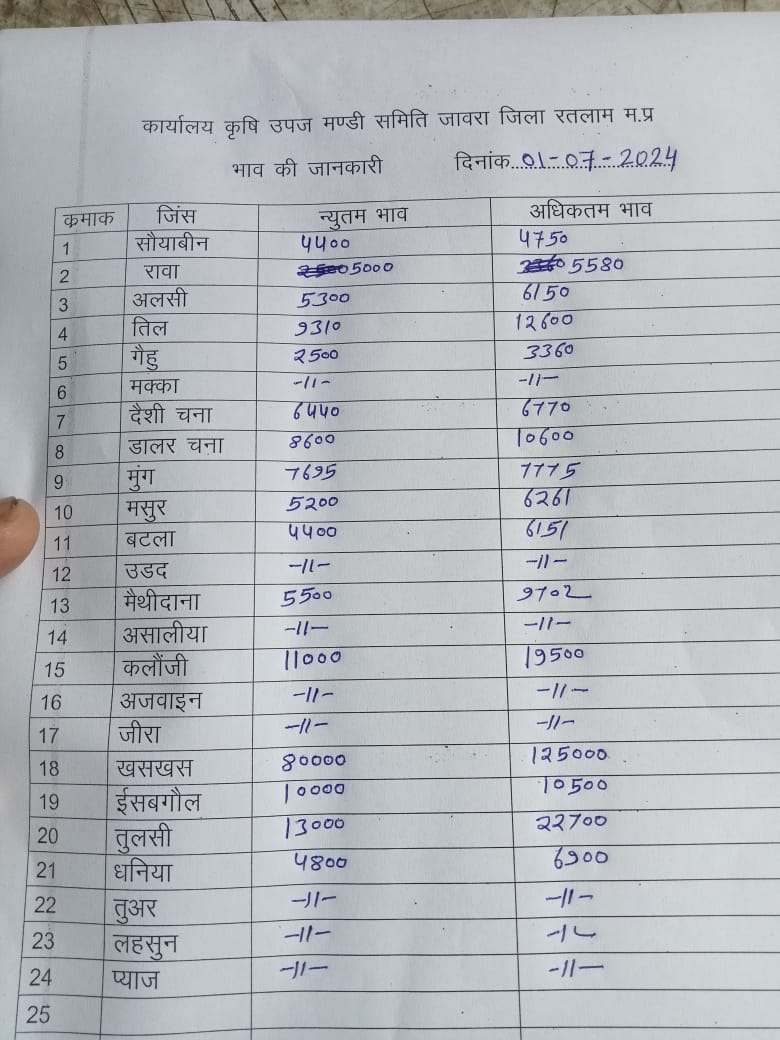 कार्यालय कृषि उपज मण्डी समिति जावरा जिला रतलाम म.प्र
भाव की जानकारी दिनांक....01-07-2024
कमाक जिंस न्युतम भाव अधिकतम भाव
1 सौयाबीन 4400 4750
2 रावा 5000 5580
3 अलसी 5300 6150
4 तिल 9310 12600
5 गैहु 2500 3360
6 मक्का -11- -11-
7 दैशी चना 6440 6770
8 डालर चना 8600 10600
9 मुंग 7695 7775
10 मसुर 5200 6261
11 बटला 4400 6151
12 उडद -11- -11-
13 मैथीदाना 5500 9702
14 असालीया -11- -11-
15 कलौंजी 11000 19500
16 अजवाइन -11- -11-
17 जीरा -11- -11-
18 खसखस 80000 125000
19 ईसबगौल 10000 10500
20 तुलसी 13000 22700
21 धनिया 4800 6900
22 तुअर -11- -11-
23 लहसुन -11-
24 प्याज -11- -11-
25